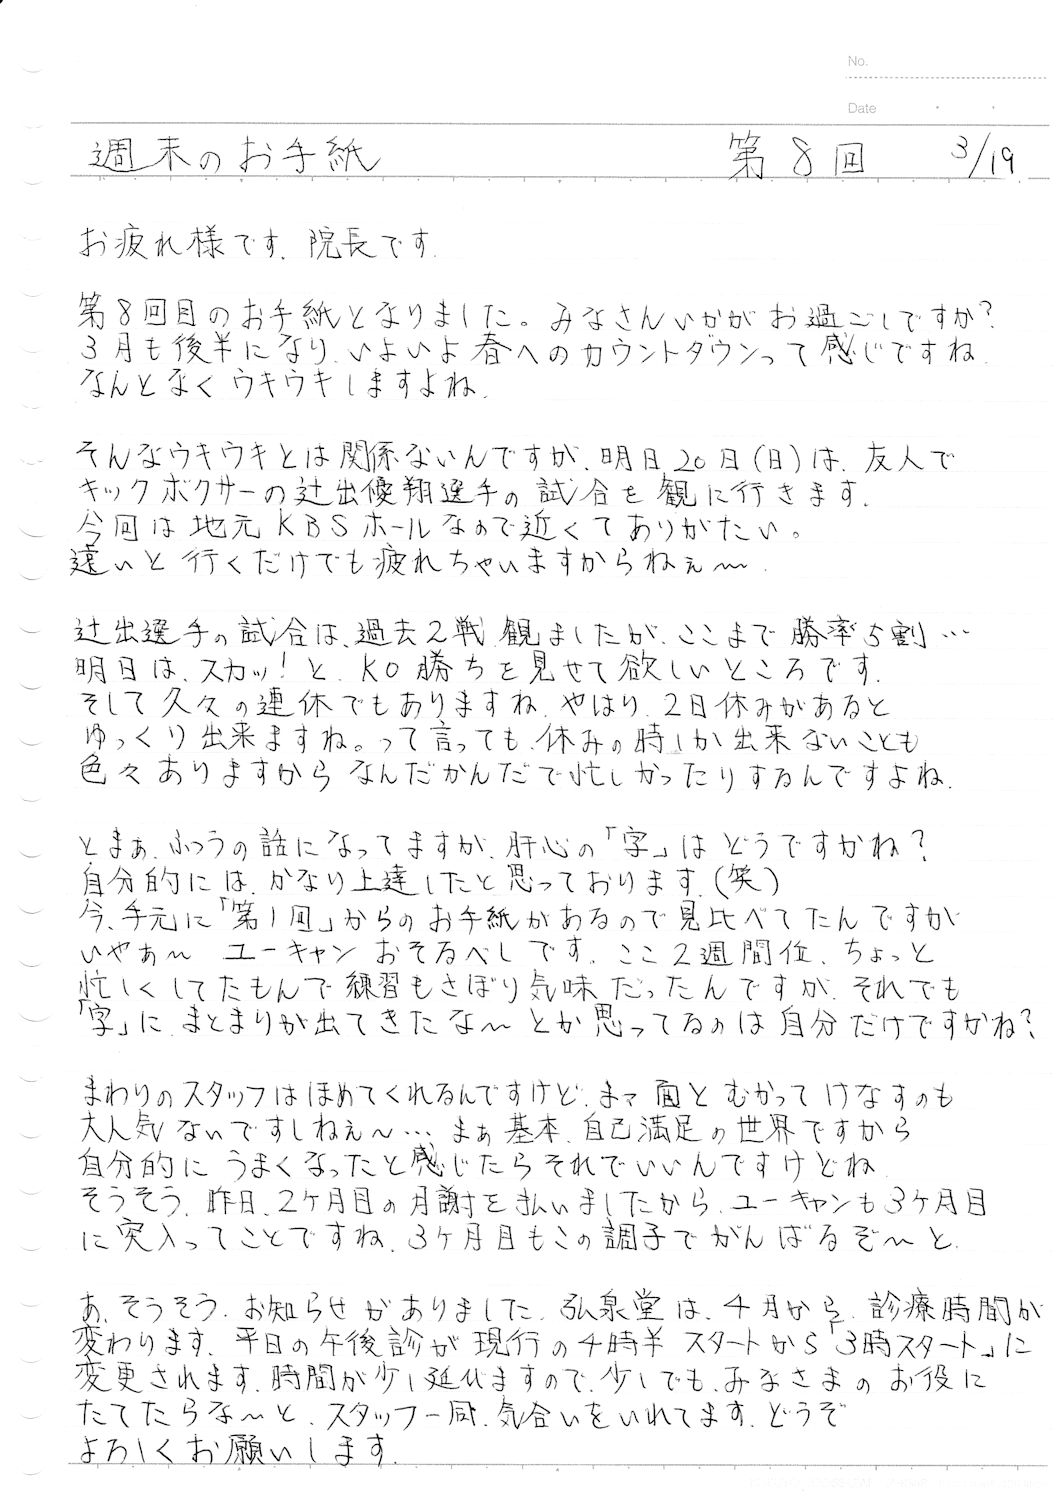 No.
Date
週末のお手紙 第8回 3/19
お疲れ様です、院長です。
第8回目のお手紙となりました。みなさんいかがお過ごしですか?
3月も後半になり、いよいよ春へのカウントダウンって感じですね。
なんとなくウキウキしますよね。
そんなウキウキとは関係ないんですが、明日20日(日)は、友人で
キックボクサーの辻出優翔選手の試合を観に行きます。
今回は地元KBSホールなので近くてありがたい。
遠いと行くだけでも疲れちゃいますからねぇ〜。
辻出選手の試合は、過去2戦、観ましたが、ここまで勝率5割…
明日は、スカッ!と、KO勝ちを見せて欲しいところです。
そして久々の連休でもありますね、やはり、2日休みがあると
ゆっくり出来ますね。って言っても、休みの時しか出来ないことも
色々ありますからなんだかんだで忙しかったりするんですよね。
とまぁ、ふつうの話になってますが、肝心の「字」はどうですかね?
自分的には、かなり上達したと思っております。(笑)
今、手元に「第1回」からのお手紙があるので見比べてたんですが
いやぁ〜 ユーキャンおそるべしです。ここ2週間位、ちょっと
忙しくしてたもんで練習もさぼり気味だったんですが、それでも
「字」に、まとまりが出てきたな〜とか思ってるのは自分だけですかね?
まわりのスタッフはほめてくれるんですけど、まァ面とむかってけなすのも
大人気ないですしねぇ〜…まぁ基本、自己満足の世界ですから
自分的にうまくなったと感じたらそれでいいんですけどね。
そうそう、昨日、2ケ月目の月謝を払いましたから、ユーキャンも3ケ月目
に突入ってことですね、3ケ月目もこの調子でがんばるぞ〜と。
あ、そうそう、お知らせがありました、弘泉堂は、4月から、診療時間が
変わります、平日の午後診が現行の4時半スタートから「3時スタート」に
変更されます、時間が少し延びますので、少しでも、みなさまのお役に
たてたらな〜と、スタッフ一同、気合いをいれてます、どうぞ
よろしくお願いします。